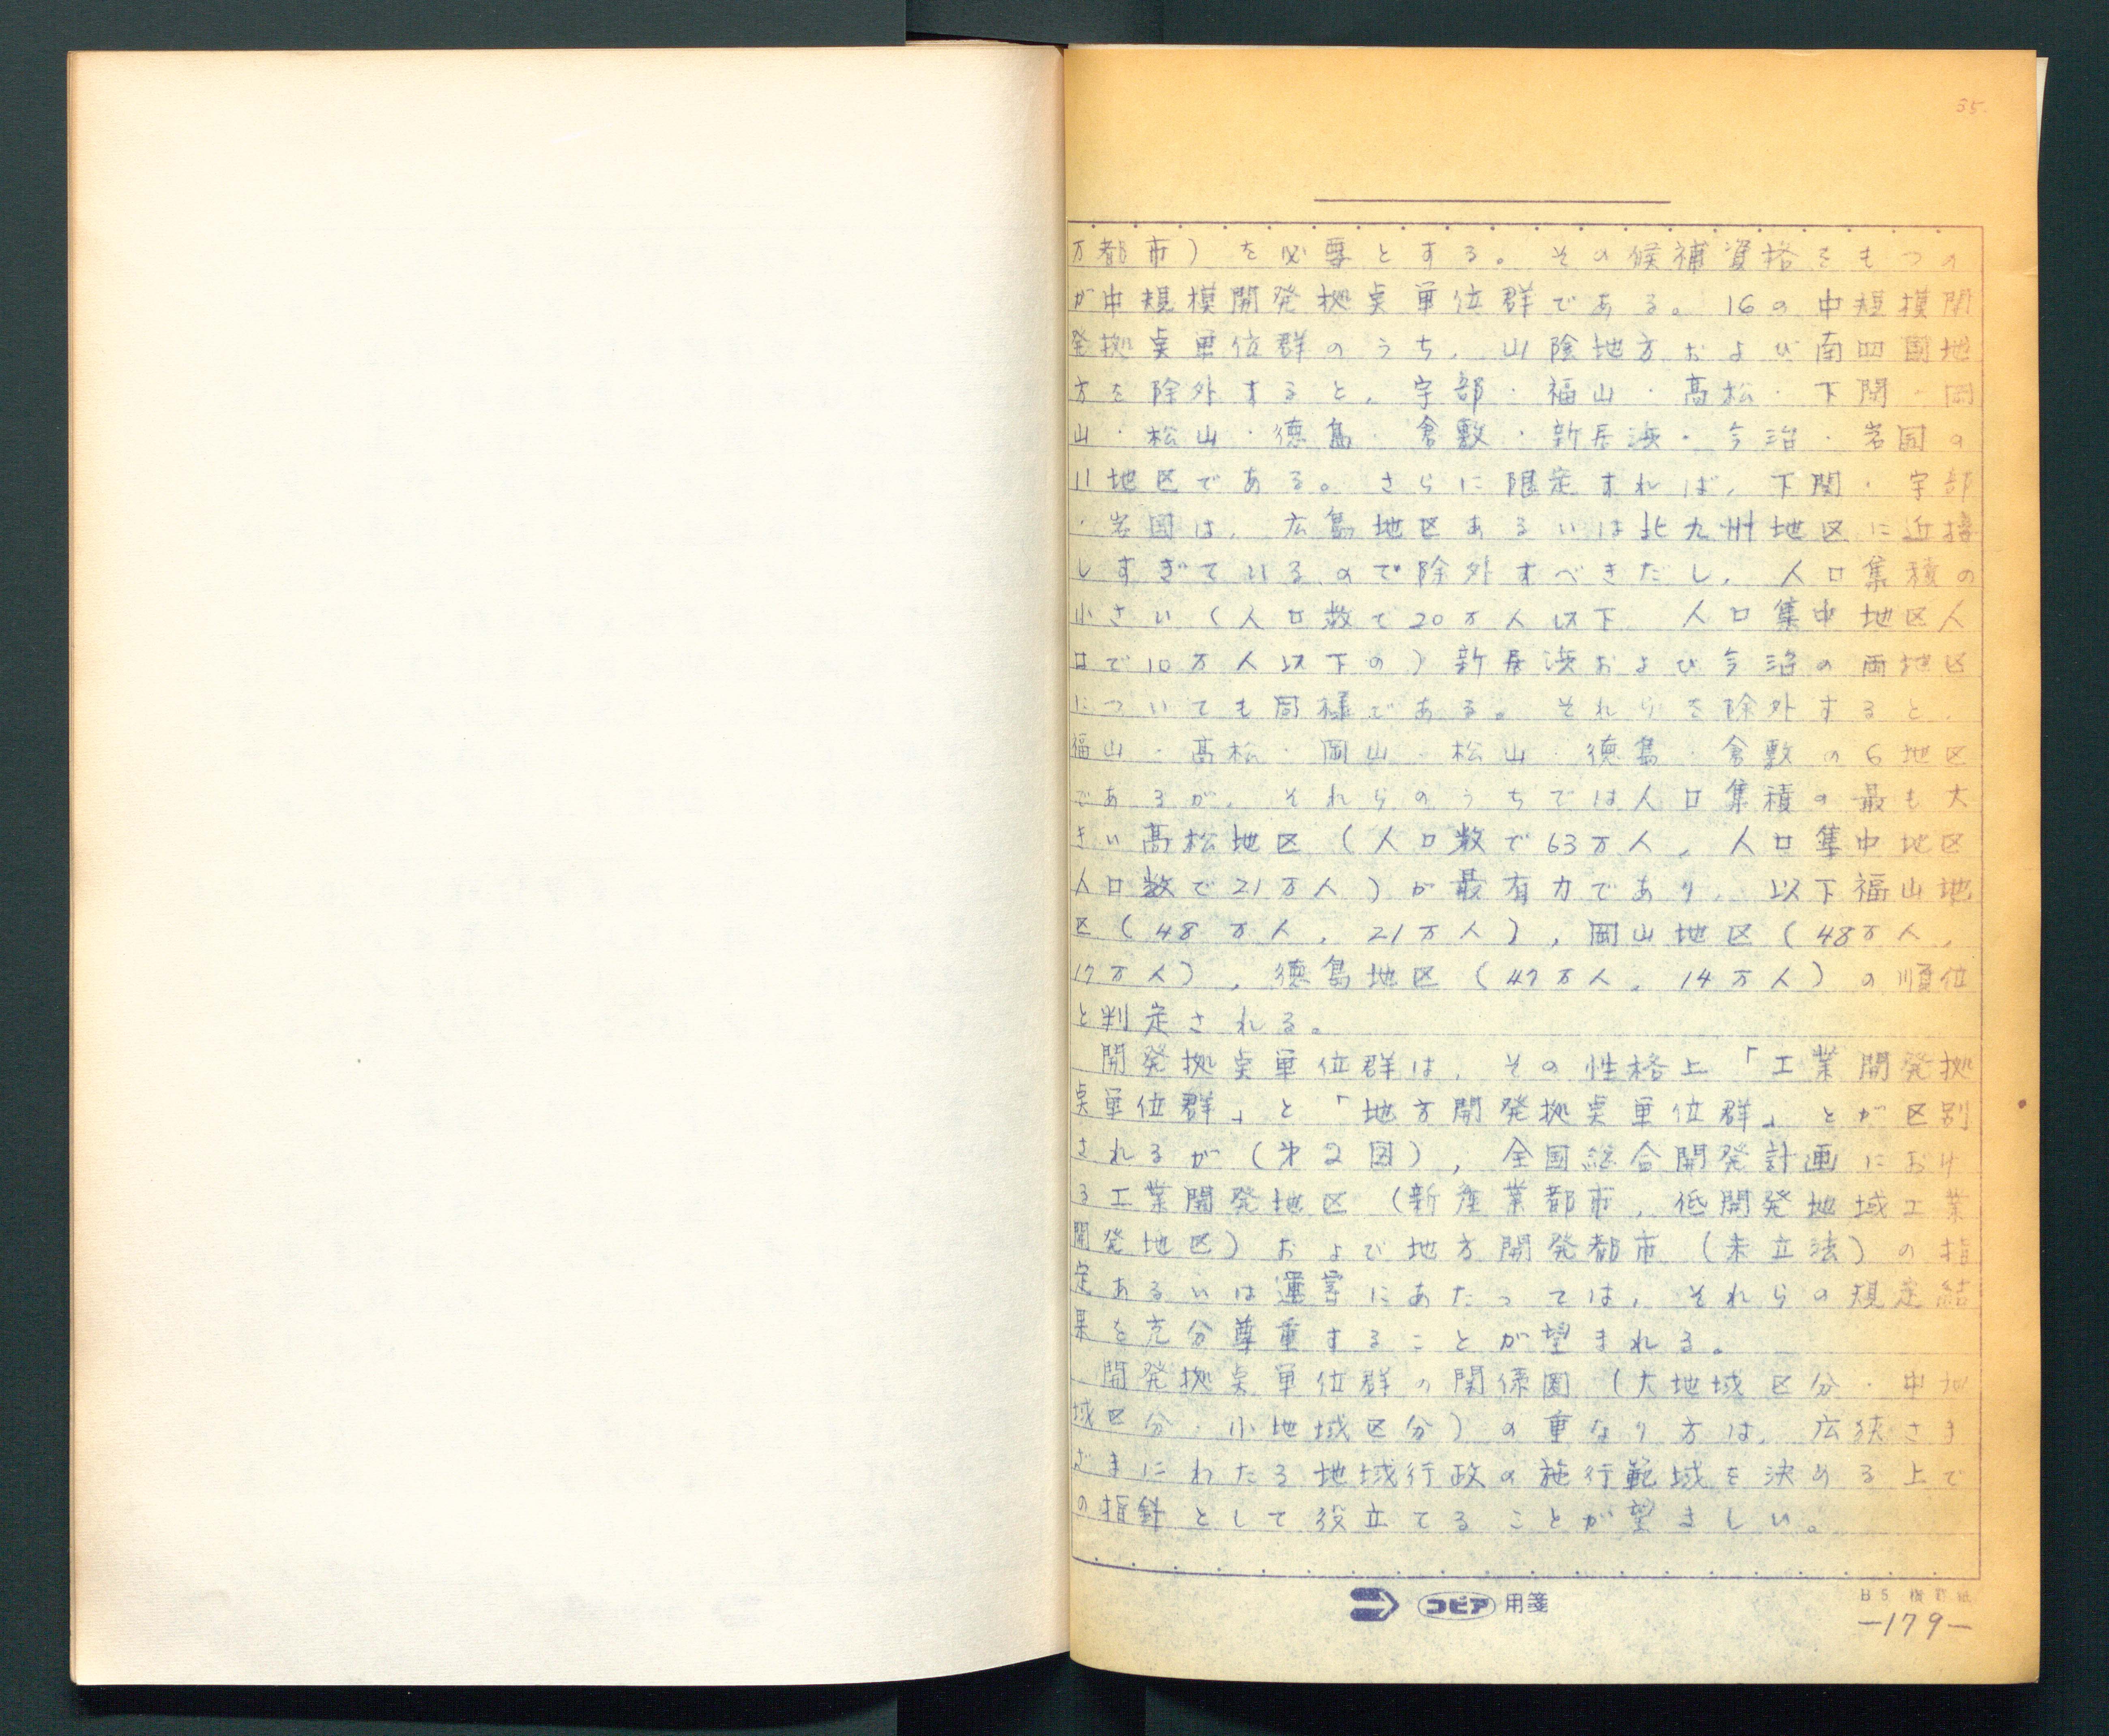 35.
方都市）を必要とする。その候補資格をもつの
が中規模開発拠点単位群である。16の中規模開
発拠点単位群のうち，山陰地方および南四国地
方を除外すると，宇部・福山・高松・下関・岡
山・松山・徳島・倉敷・新居浜・今治・岩国の
11地区である。さらに限定すれば，下関・宇部
・岩国は，広島地区あるいは北九州地区に近接
しすぎているので除外すべきだし，人口集積の
小さい（人口数で20万人以下，人口集中地区人
口で10万人以下の）新居浜および今治の両地区
についても同様である。それらを除外すると，
福山・高松・岡山・松山・徳島・倉敷の6地区
であるが，それらのうちでは人口集積の最も大
きい高松地区（人口数で63万人，人口集中地区
人口数で21万人）が最有力であり，以下福山地
区（48万人，21万人），岡山地区（48万人，
17万人），徳島地区（47万人，14万人）の順位
と判定される。
開発拠点単位群は，その性格上「工業開発拠
点単位群」と「地方開発拠点単位群」とが区別
されるが（第2図），全国総合開発計画におけ
る工業開発地区（新産業都市，低開発地域工業
開発地区）および地方開発都市（未立法）の指
定あるいは運営にあたっては，それらの規定結
果を充分尊重することが望まれる。
開発拠点単位群の関係圏（大地域区分・中地
域区分・小地域区分）の重なり方は，広狭さま
ざまにわたる地域行政の施行範域を決める上で
の指針として役立てることが望ましい。
コピア 用箋
B5
—179—